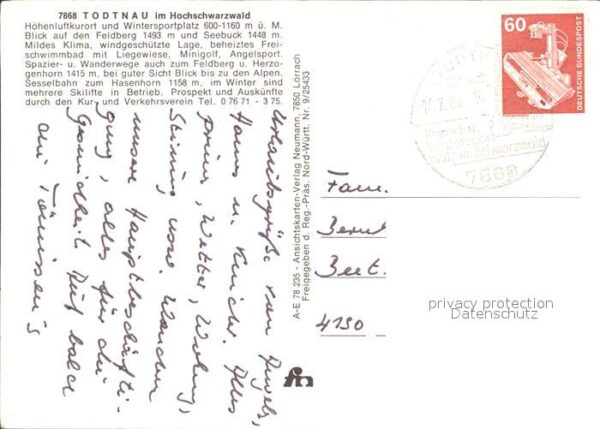 7868 TODTNAU im Hochschwarzwald
Höhenluftkurort und Wintersportplatz 600-1160 m ü. M.
Blick auf den Feldberg 1493 m und Seebuck 1448 m.
Mildes Klima, windgeschützte Lage, beheiztes Frei-
schwimmbad mit Liegewiese, Minigolf, Angelsport.
Spazier- u. Wanderwege auch zum Feldberg u. Herzo-
genhorn 1415 m, bei guter Sicht Blick bis zu den Alpen.
Sesselbahn zum Hasenhorn 1158 m, im Winter sind
mehrere Skilifte in Betrieb. Prospekt und Auskünfte
durch den Kur- und Verkehrsverein Tel. 0 76 71 - 3 75.
Urlaubsgrüße von
Hanns u. Kinder. Alles
prima, Wetter, Wohnung,
Stimmg. usw. Wandern
unsere Hauptbeschäfti-
gung, alles für die
Gesundheit. Auf bald
die Tönissen's
A-E 78 235 - Ansichtskarten-Verlag Neumann, 7850 Lörrach
Freigegeben d. Reg.-Präs. Nord-Württ. Nr. 9/25433
60
DEUTSCHE BUNDESPOST
7868
Fam.
Bernd
Beet.
4190
privacy protection
Datenschutz